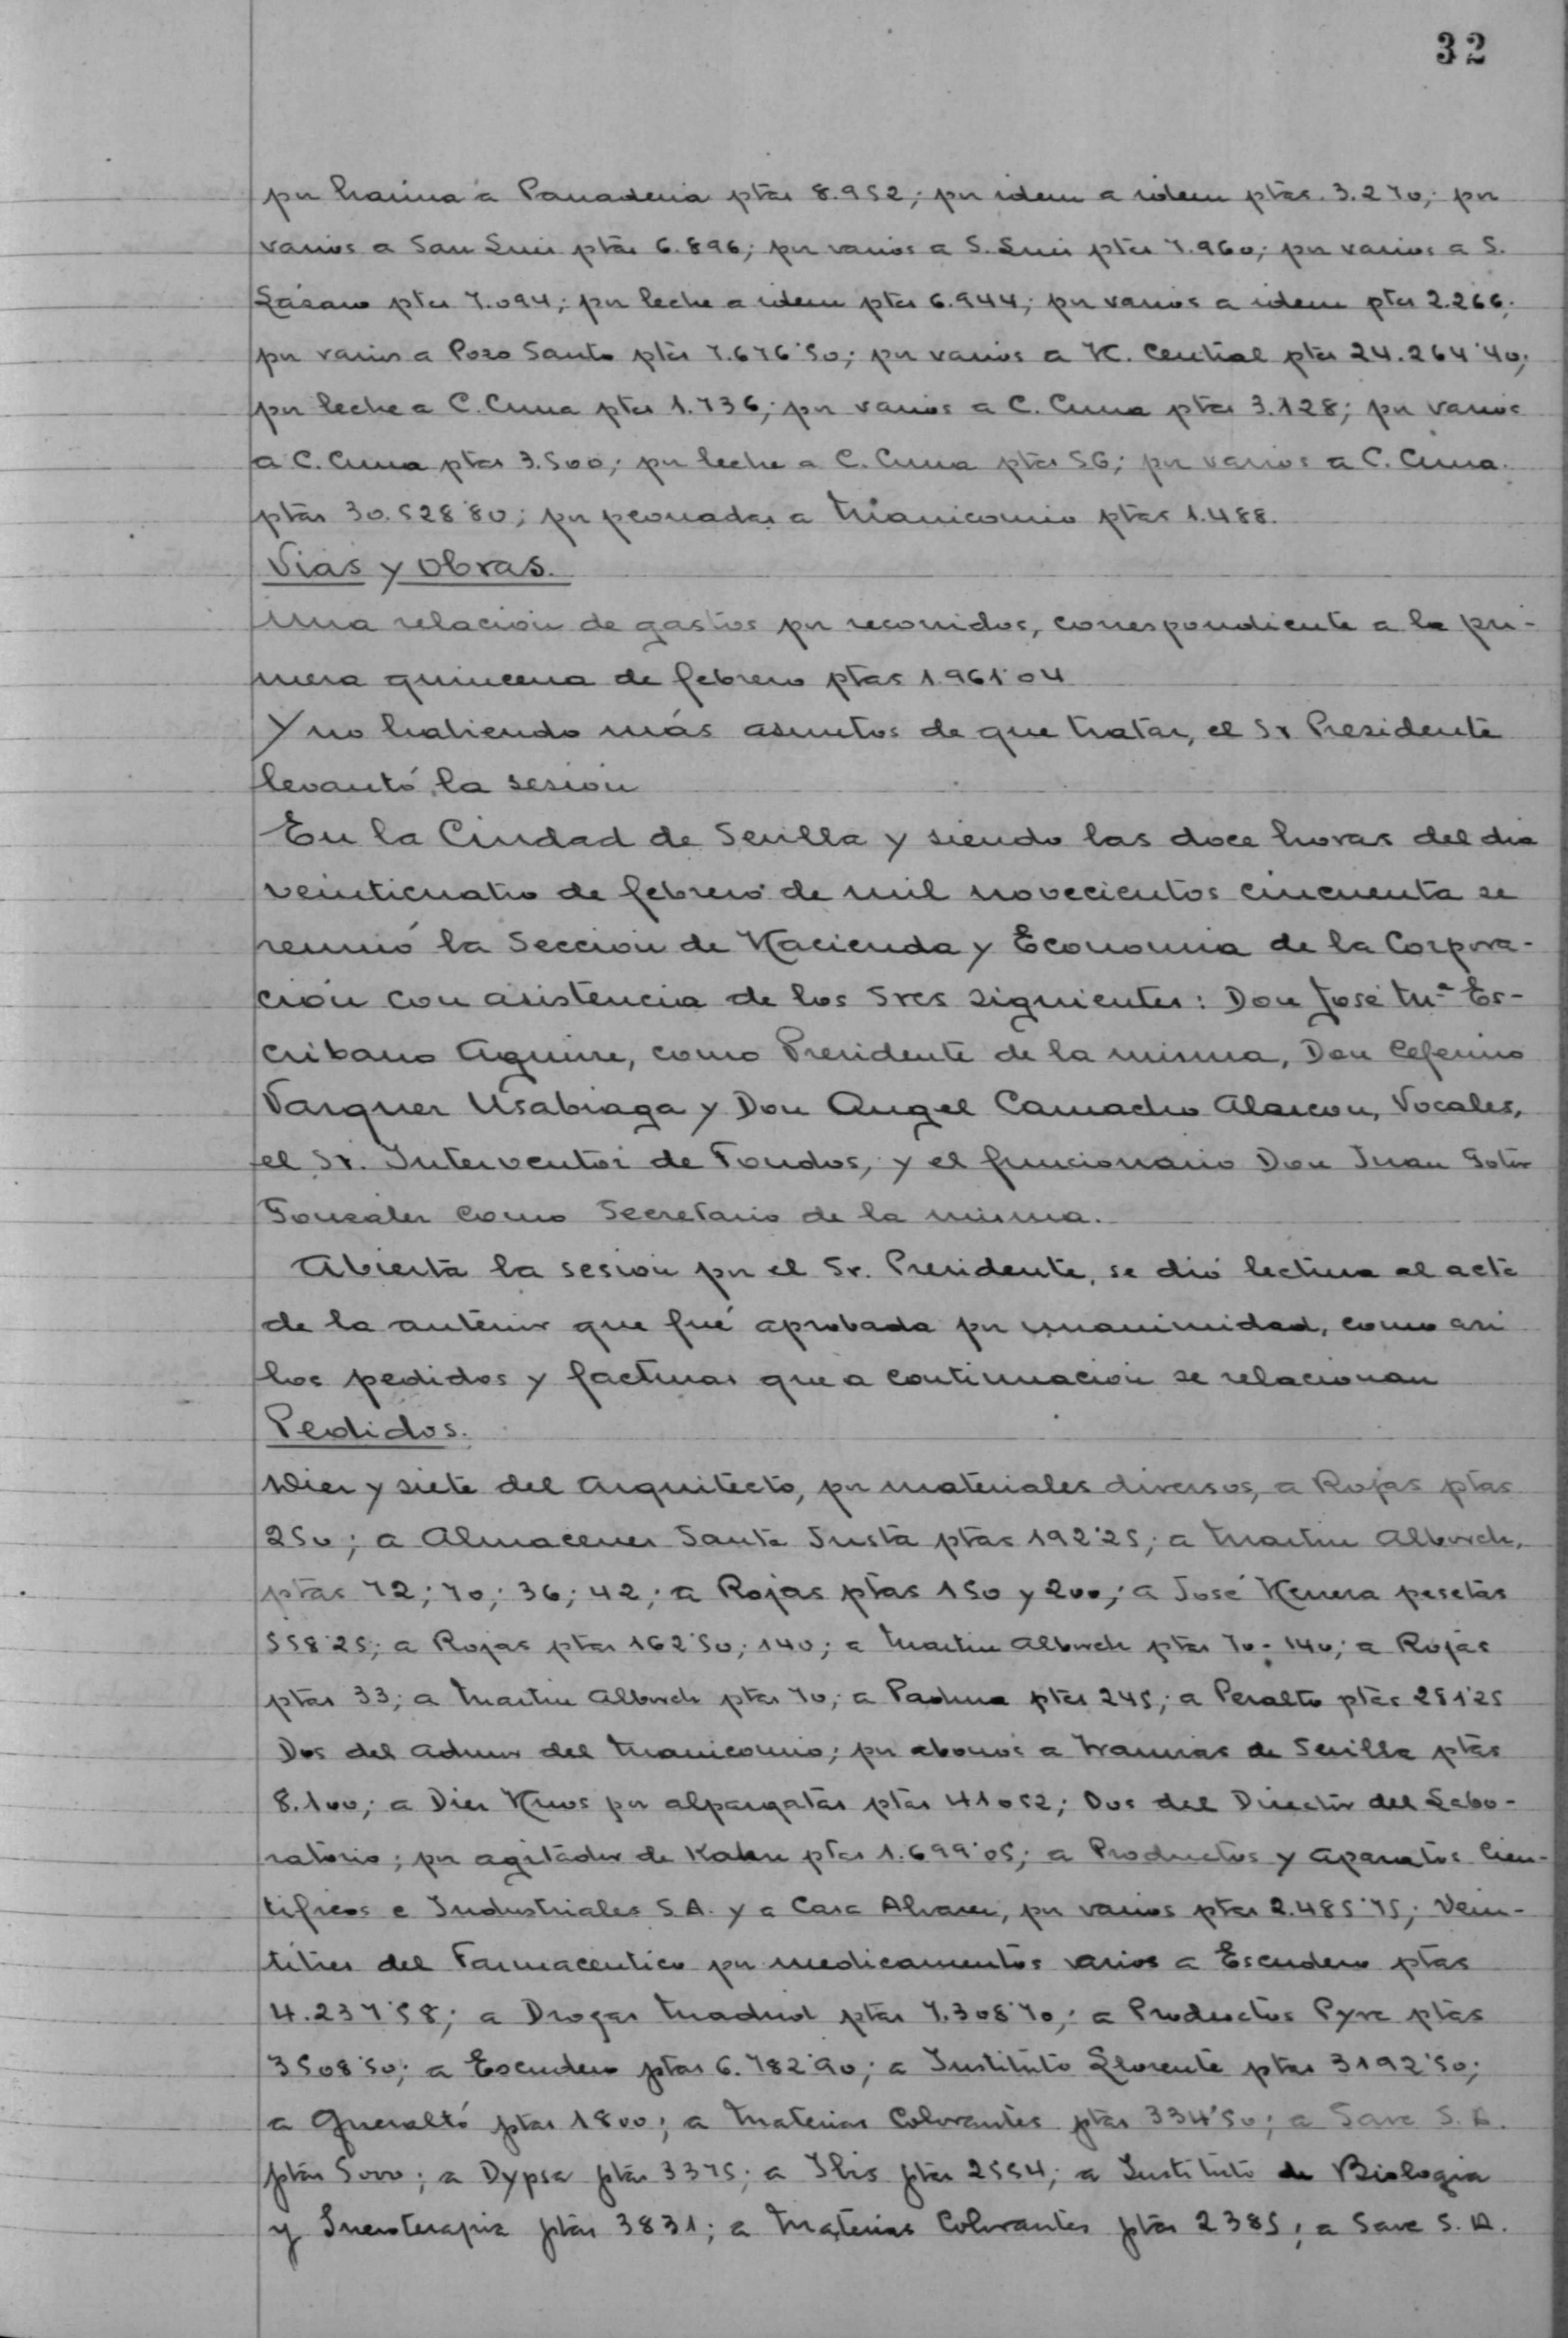 32
por harina a Panaderia ptas 8.952; por idem a idem ptas. 3.270; por
varios a San Luis ptas 6.896; por varios a S. Luis ptas 7.960; por varios a S.
Lázaro ptas 7.094; por leche a idem ptas 6.944; por varios a idem ptas 2.266;
por varios a Pozo Santo ptas 7.676'50; por varios a H. Central ptas 24.264'40;
por leche a C. Cuna ptas 1.736; por varios a C. Cuna ptas 3.128; por varios
a C. Cuna ptas 3.500; por leche a C. Cuna ptas 56; por varios a C. Cuna.
ptas 30.528'80; por peonadas a Manicomio ptas 1.488.
Vias y Obras.
Una relación de gastos por recorridos, correspondiente a la pri-
mera quincena de febrero ptas 1.961'04
Y no habiendo más asuntos de que tratar, el Sr Presidente
levantó la sesión
En la Ciudad de Sevilla y siendo las doce horas del dia
veinticuatro de febrero de mil novecientos cincuenta se
reunió la Sección de Hacienda y Economia de la Corpora-
ción con asistencia de los Sres siguientes: Don José Mª Es-
cribano Aguirre, como Presidente de la misma, Don Ceferino
Vazquez Usabiaga y Don Angel Camacho Alarcon, Vocales,
el Sr. Interventor de Fondos, y el funcionario Don Juan
Gonzalez como Secretario de la misma.
Abierta la sesion por el Sr. Presidente, se dió lectura al acta
de la anterior que fué aprobada por unanimidad, como asi
los pedidos y facturas que a continuacion se relacionan
Pedidos.
Diez y siete del Arquitecto, por materiales diversos, a Rojas ptas
250; a Almacenes Santa Justa ptas 192'25; a Martin Alborch,
ptas 72; 70; 36; 42; a Rojas ptas 150 y 200; a José Herrera pesetas
558'25; a Rojas ptas 162'50; 140; a Martin Alborch ptas 70; 140; a Rojas
ptas 33; a Martin Alborch ptas 70; a Padura ptas 245; a Peralto ptas 281'25
Dos del Admor del Manicomio; por abonos a Tranvias de Sevilla ptas
8.100; a Diez Hnos por alpargatas ptas 41052; Dos del Director del Labo-
ratorio; por agitador de Kahn ptas 1.699'05; a Productos y Aparatos Cien-
tificos e Industriales S.A. y a Casa Alvarez, por varios ptas 2.485'75; Vein-
titres del Farmaceutico por medicamentos varios a Escudero ptas
4.237'58; a Drogas Madrid ptas 7.308'70; a Productos Pyre ptas
3508'50; a Escudero ptas 6.782'90; a Instituto Llorente ptas 3192'50;
a Queraltó ptas 1800; a Materias Colorantes ptas 334'50; a Save S. A.
ptas 5000; a Dypsa ptas 3375; a Ibis ptas 2554; a Instituto de Biologia
y Sueroterapia ptas 3831; a Materias Colorantes ptas 2385; a Save S. A.